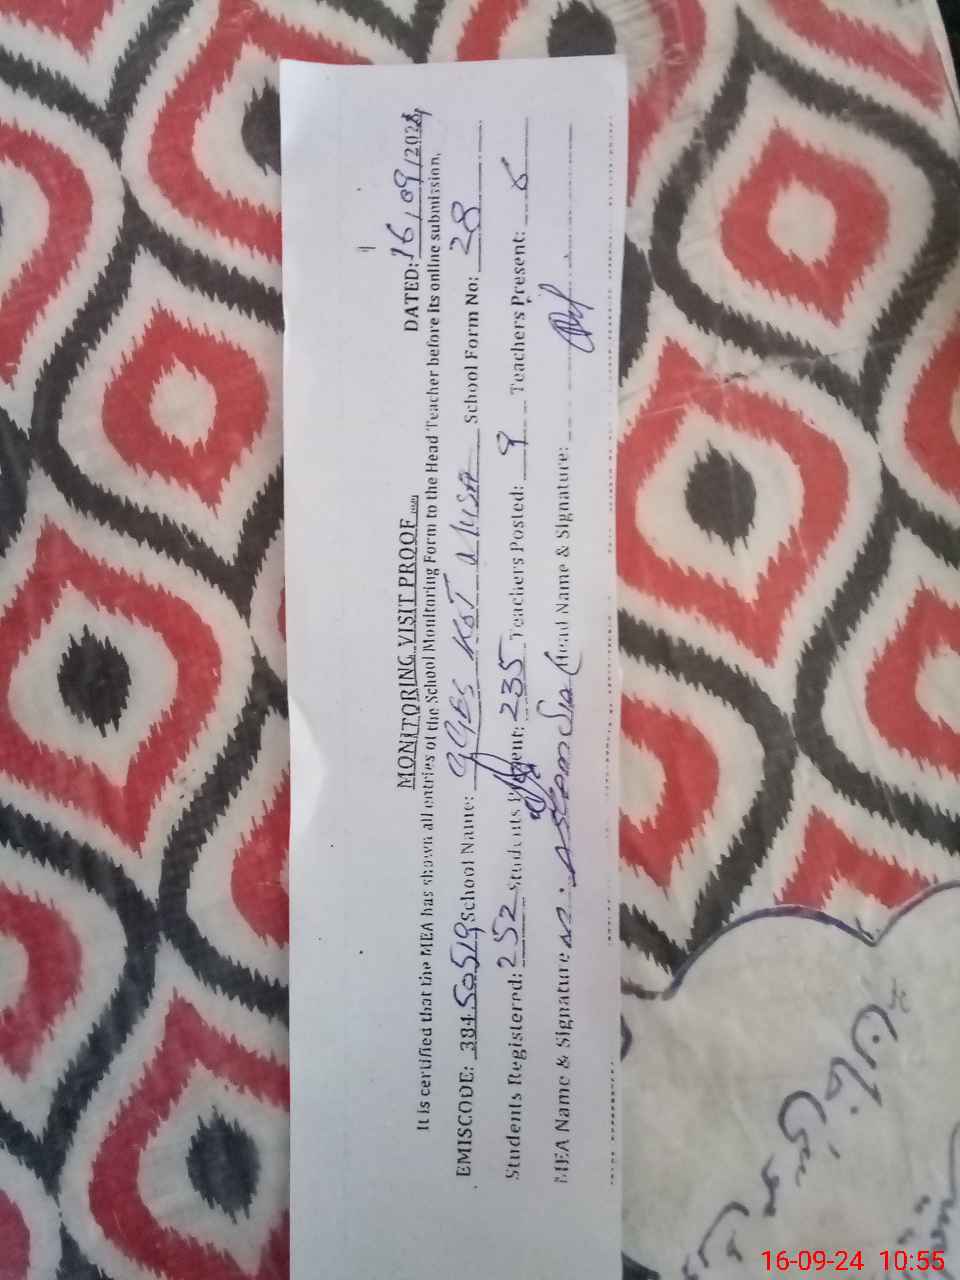 MONITORING VISIT PROOF
DATED: 16/09/2024
It is certified that the MEA has shown all entries of the School Monitoring Form to the Head Teacher before its online submission.
EMISCODE: 38450519 School Name: GGES KOT School Form No: 28
Students Registered: 252 Students Present: 235 Teachers Posted: 9 Teachers Present: 8
MEA Name & Signature Head Name & Signature:
16-09-24 10:55